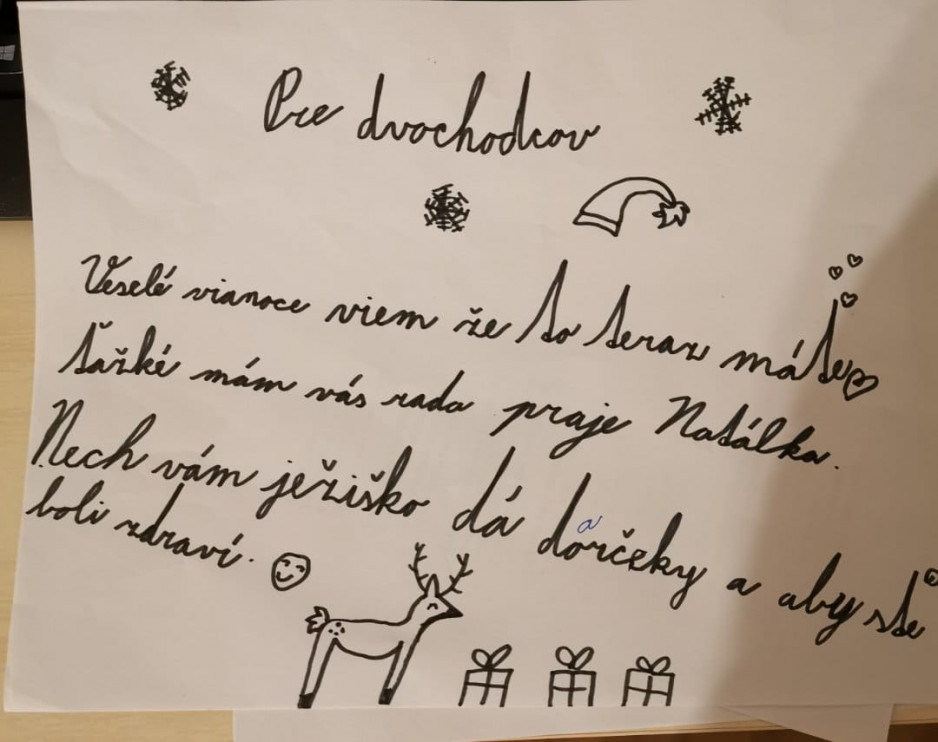 Pre dvochodcov
Veselé vianoce viem že to teraz máte
ťažké mám vás rada praje Natálka.
Nech vám ježiško dá darčeky a aby ste
boli zdraví.